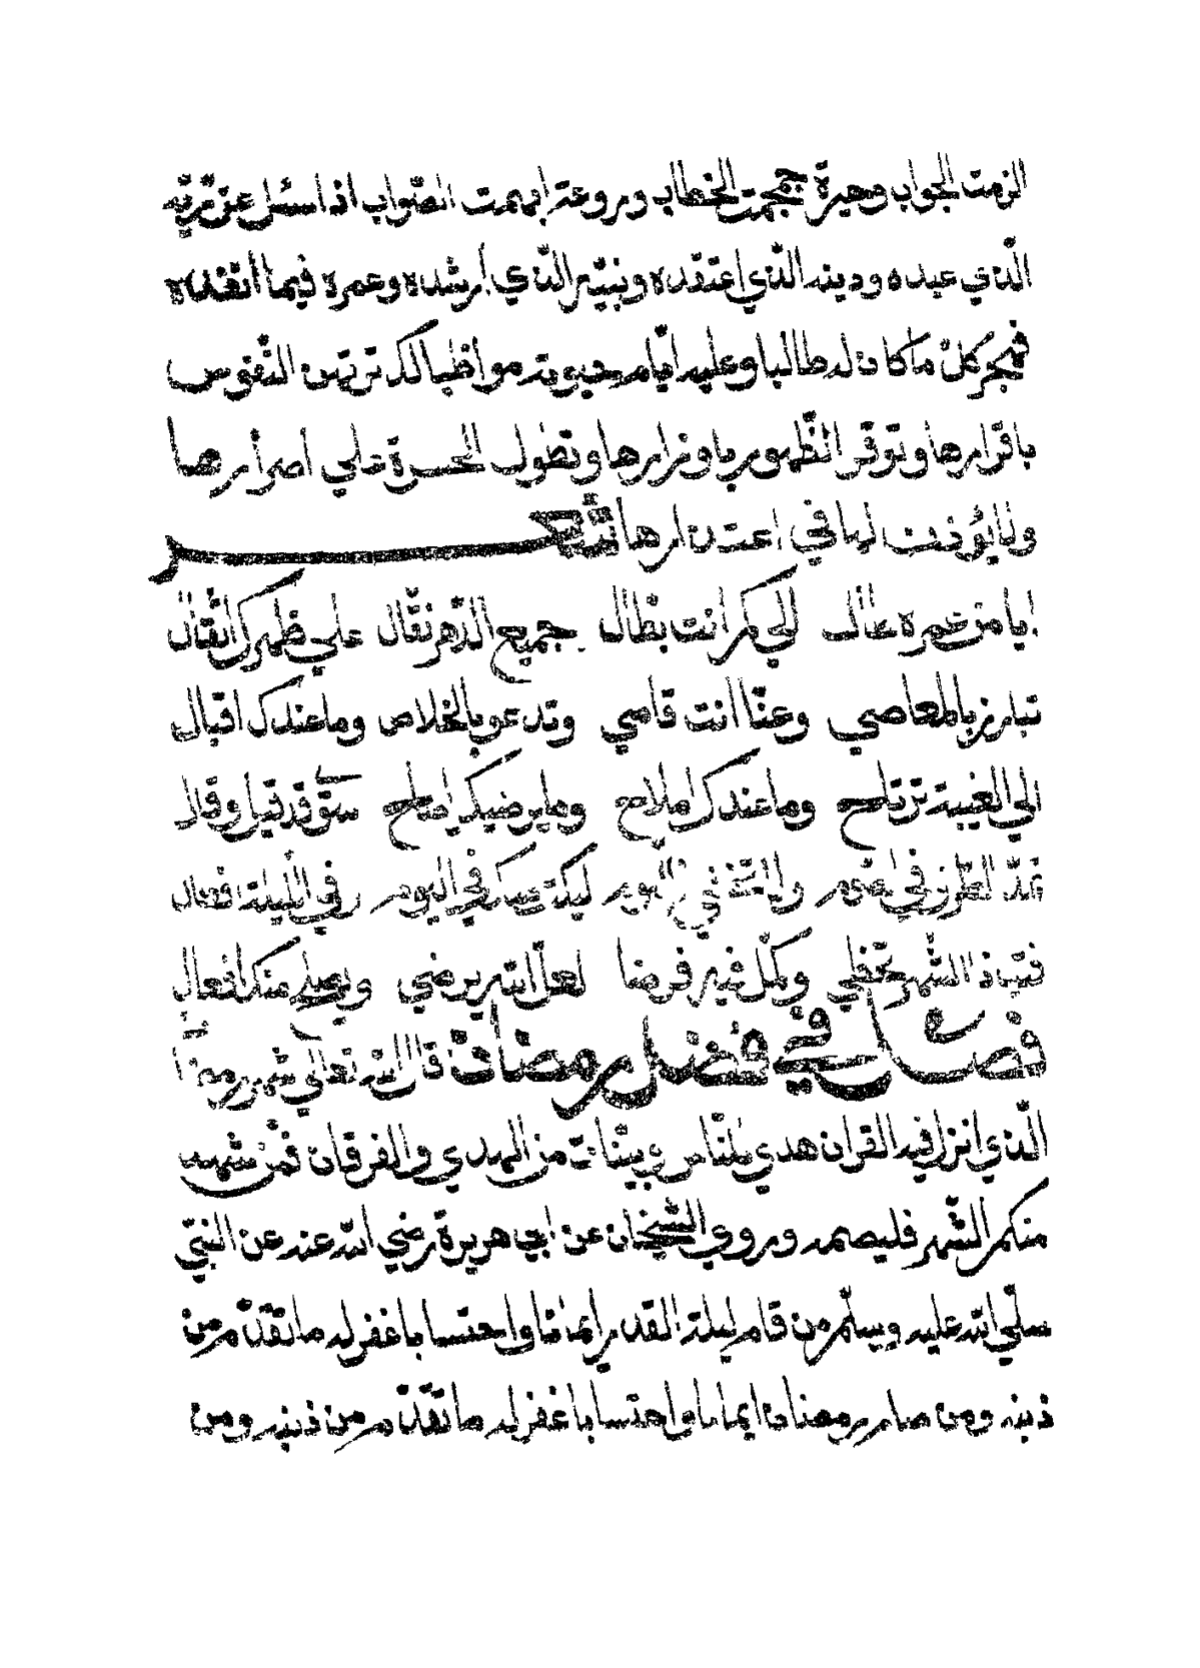 الزمت الجواب وحيرة جمجمت الخطاب وروعة ابهمت الصواب اذا سئل عن ربه
الذي عبده ودينه الذي اعتقده ونبيه الذي ارشده وعمره فيما انفده
كل ما كان له طالبا وعليه ايام حيوته مواظبا لك ترتهن النفوس
باقرارها وتوقر الظهور باوزارها وتطول الحسرة على اصرارها
ولا يؤذن لها في اعتذارها شعر
ايا من عمره طال الى كم انت بطال جميع الدهر نقال على ظهرك اثقال
تبارز بالمعاصي وعنا انت قاصي وتدعو بالخلاص وما عندك اقبال
الى الغيبة ترتاح وما عندك اصلاح وما يرضيك يا صاح سوى قد قيل وقال
في اليوم وفي الليلة افعال
الشهر تحظى وكمل فيه فرضا لعل الله يرضى ويصلح منك افعال
فصل في فضل رمضان قال الله تعالى شهر رمضان
الذي انزل فيه القران هدى للناس وبينات من الهدى والفرقان فمن شهد
منكم الشهر فليصمه وروى الشيخان عن ابي هريرة رضي الله عنه عن النبي
صلى الله عليه وسلم من قام ليلة القدر ايمانا واحتسابا غفر له ما تقدم من
ذنبه ومن صام رمضان ايمانا واحتسابا غفر له ما تقدم من ذنبه ومن